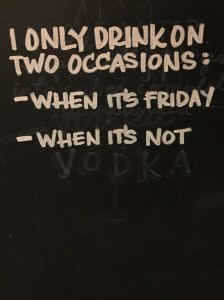 I ONLY DRINK ON
TWO OCCASIONS:
-WHEN IT'S FRIDAY
-WHEN IT'S NOT
VODKA